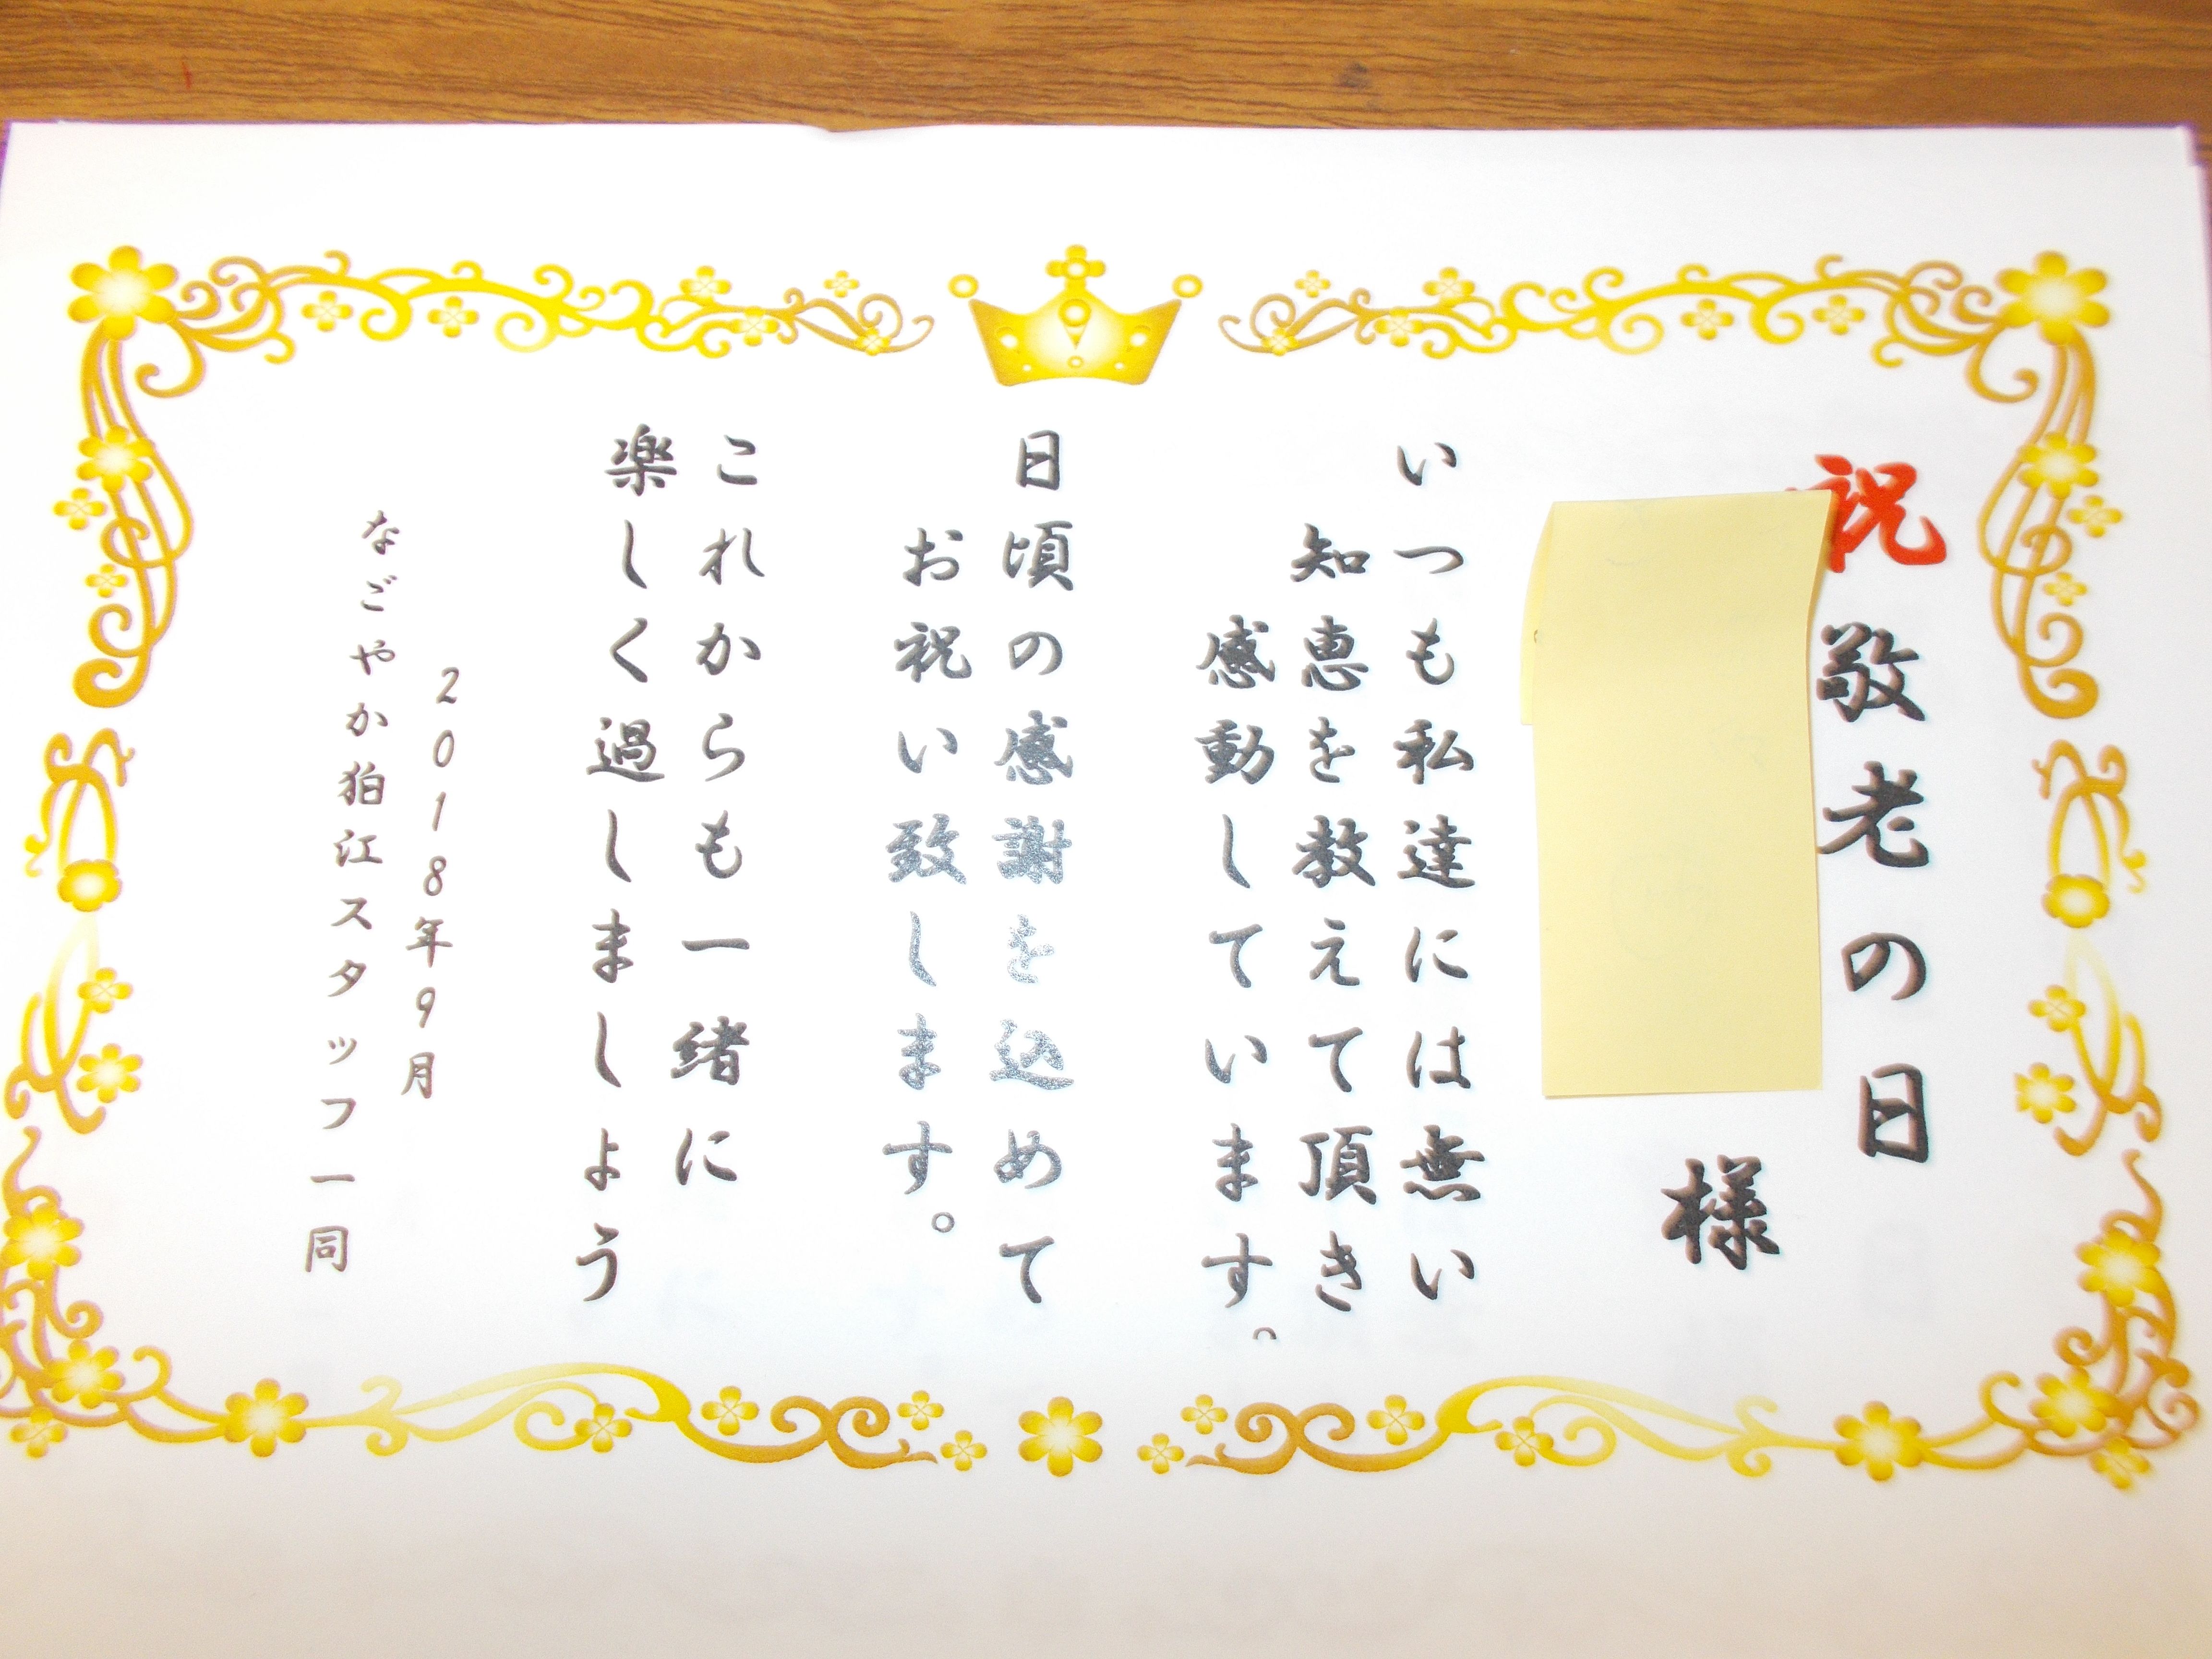 祝敬老の日
様
いつも私達には無い
知恵を教えて頂き
感動しています。
日頃の感謝を込めて
お祝い致します。
これからも一緒に
楽しく過しましょう
2018年9月
なごやか狛江スタッフ一同